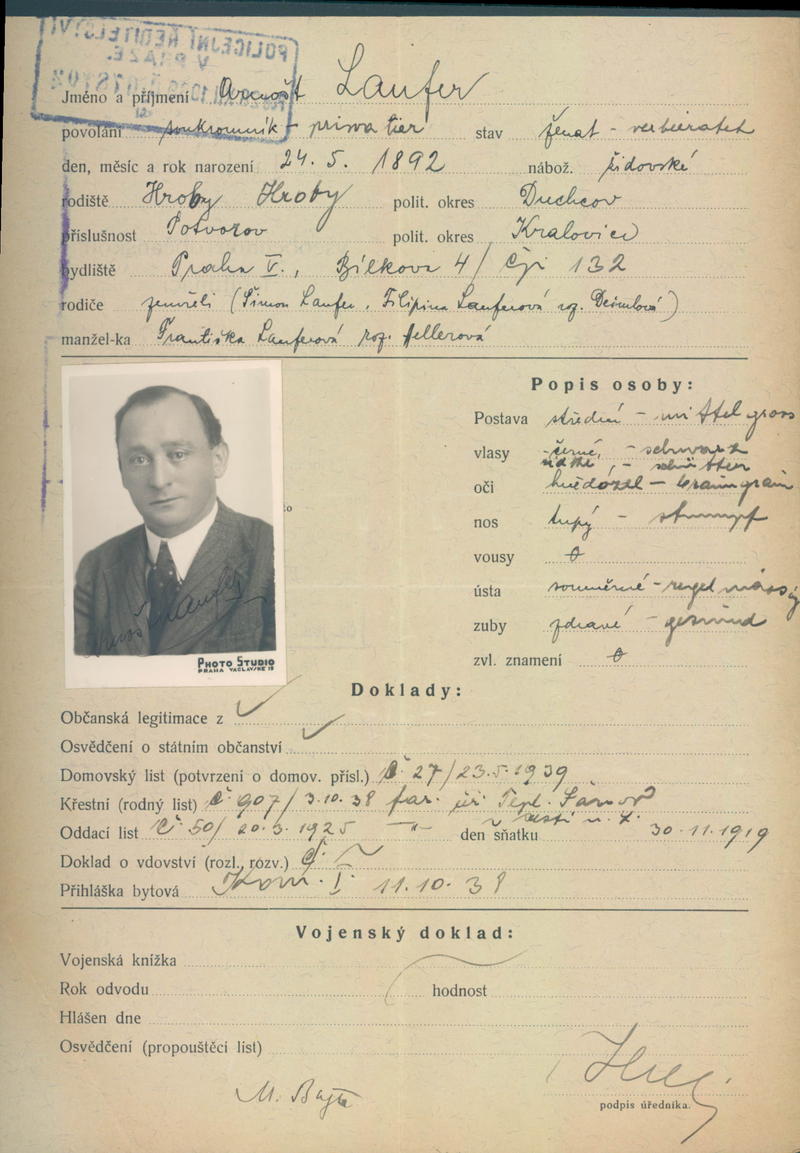 POLICEJNÍ ŘEDITELSTVÍ
V PRAZE.
Jméno a příjmení Arnošt Laufer
povolání soukromník - privatier stav ženat - verheiratet
den, měsíc a rok narození 24. 5. 1892 nábož. židovské
rodiště Hroby Hroby polit. okres Duchcov
příslušnost Potvorov polit. okres Kralovice
bydliště Praha V., Bílkova 4/ čp 132
rodiče zemřeli (Šimon Laufer, Filipina Lauferová roz.
manžel-ka Františka Lauferová roz. Hellerová
Popis osoby:
Postava střední - mittelgross
vlasy černé, - schwarz
řídké, - schütter
oči hnědozel - braungrün
nos tupý - stumpf
vousy 0
ústa souměrné - regelmässig
zuby zdravé - gesund
zvl. znamení 0
Arnošt Laufer
PHOTO STUDIO
PRAHA VÁCLAVSKÉ 19
Doklady:
Občanská legitimace z
Osvědčení o státním občanství
Domovský list (potvrzení o domov. přísl.) č 27/23.5.1939
Křestní (rodný list) č 907/3.10.38 far. úř Tepl. Šanov
Oddací list č 50/20.3.1925 -"- den sňatku v Ústí n. L. 30.11.1919
Doklad o vdovství (rozl., rozv.)
Přihláška bytová Kom. I. 11.10.38
Vojenský doklad:
Vojenská knížka
Rok odvodu hodnost
Hlášen dne
Osvědčení (propouštěcí list)
podpis úředníka.